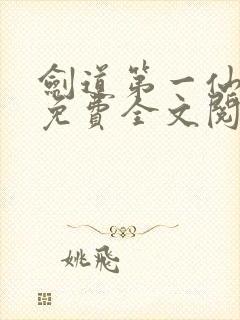 劍道第一仙
免費全文閱
姚飛